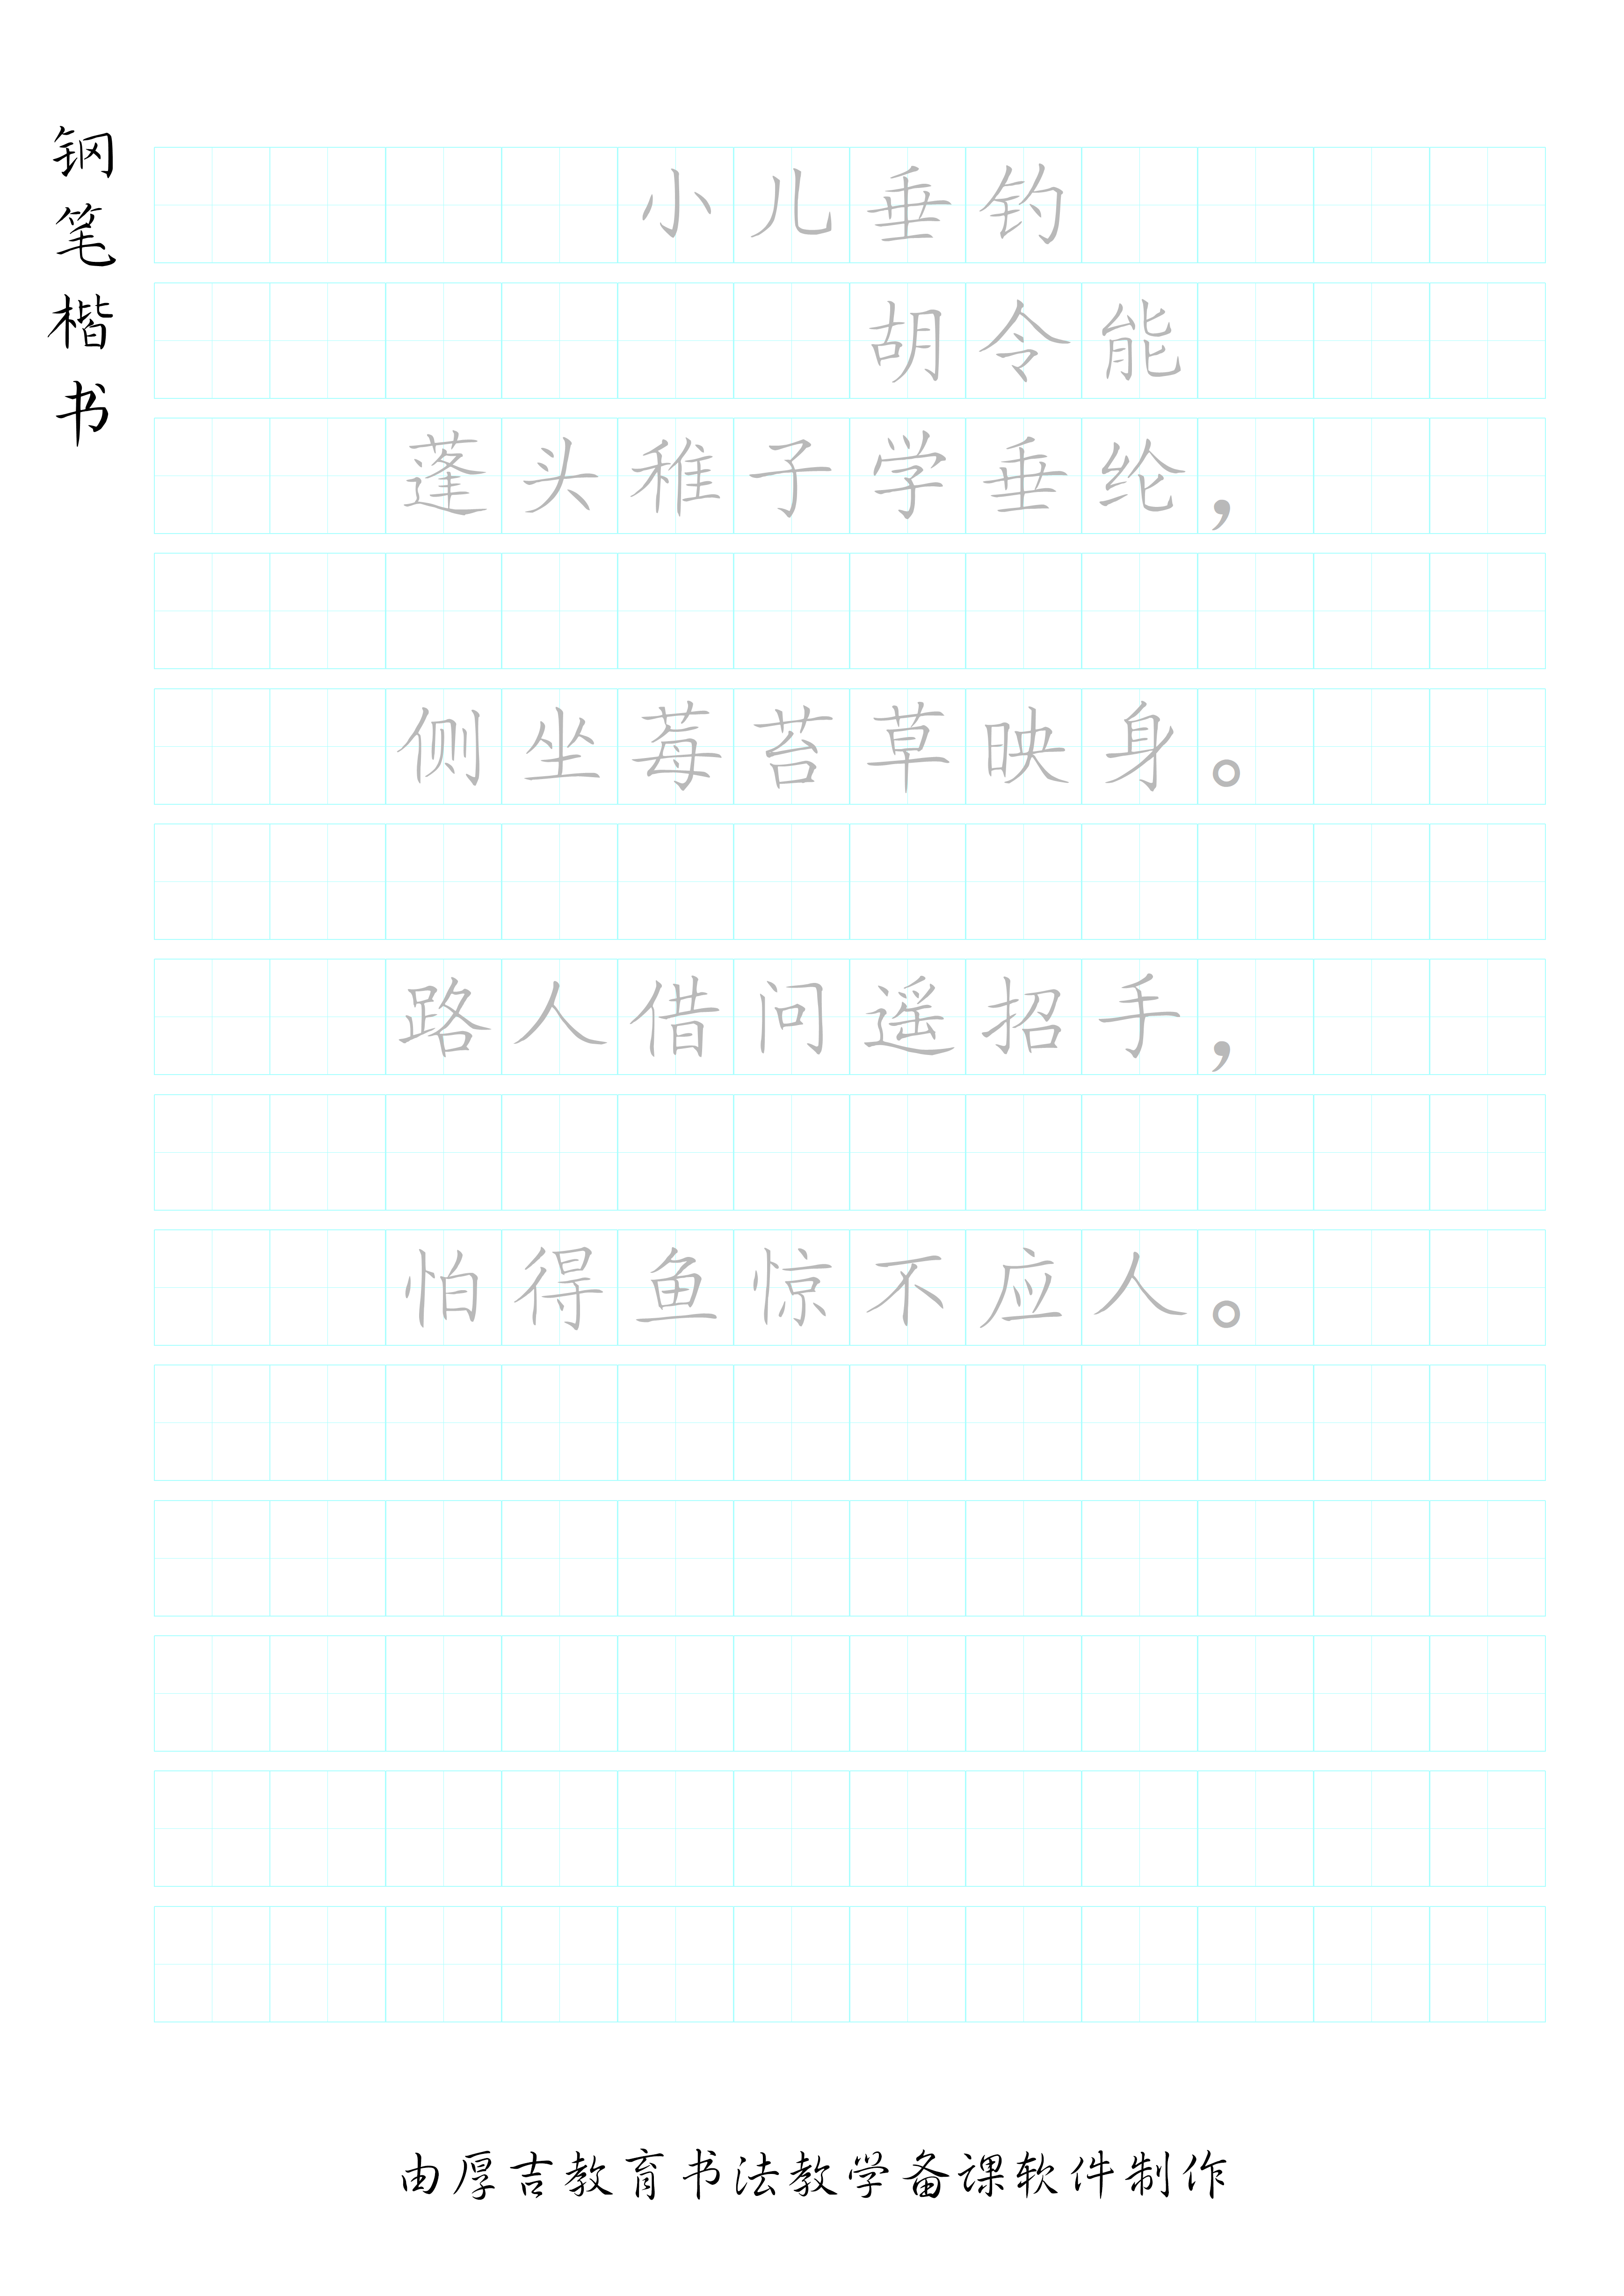 钢笔楷书
小儿垂钓
胡令能
蓬头稚子学垂纶，
侧坐莓苔草映身。
路人借问遥招手，
怕得鱼惊不应人。
由厚吉教育书法教学备课软件制作